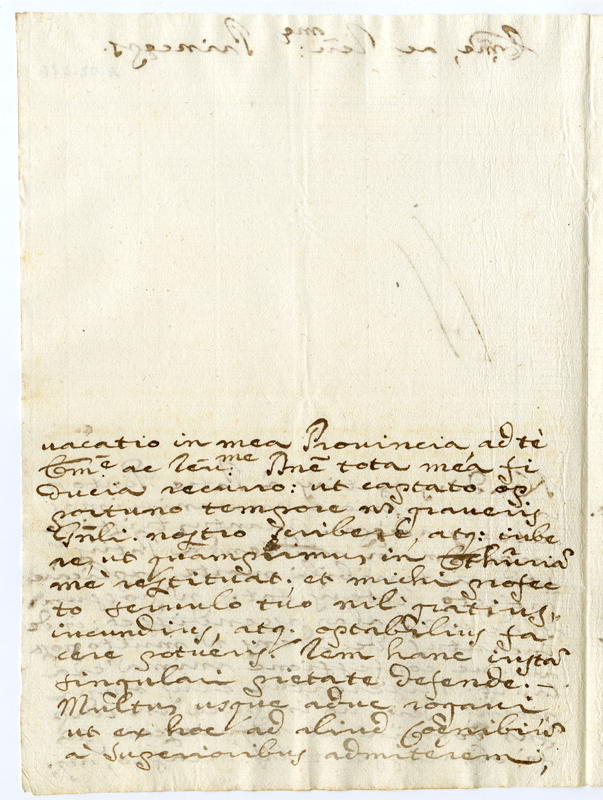 vacatio in mea Provincia ad tè
Em̃e ac Reu:me Pnẽ tota mea fi
ducia recurro: ut captato op
portuno tempore nõ graueris
Gñli nostro scribere, atq: iube
re, ut quamprimus in Ethruriã
me restituat: et michi profec
to seruulo tuo nil gratius,
iucundius, atq. optabilius fa
cere poteris. Rem hanc iustã
singulari pietate defende: -
Multus usque aduc rogaui
ut ex hoc ad aliud
à superioribus admitterem,